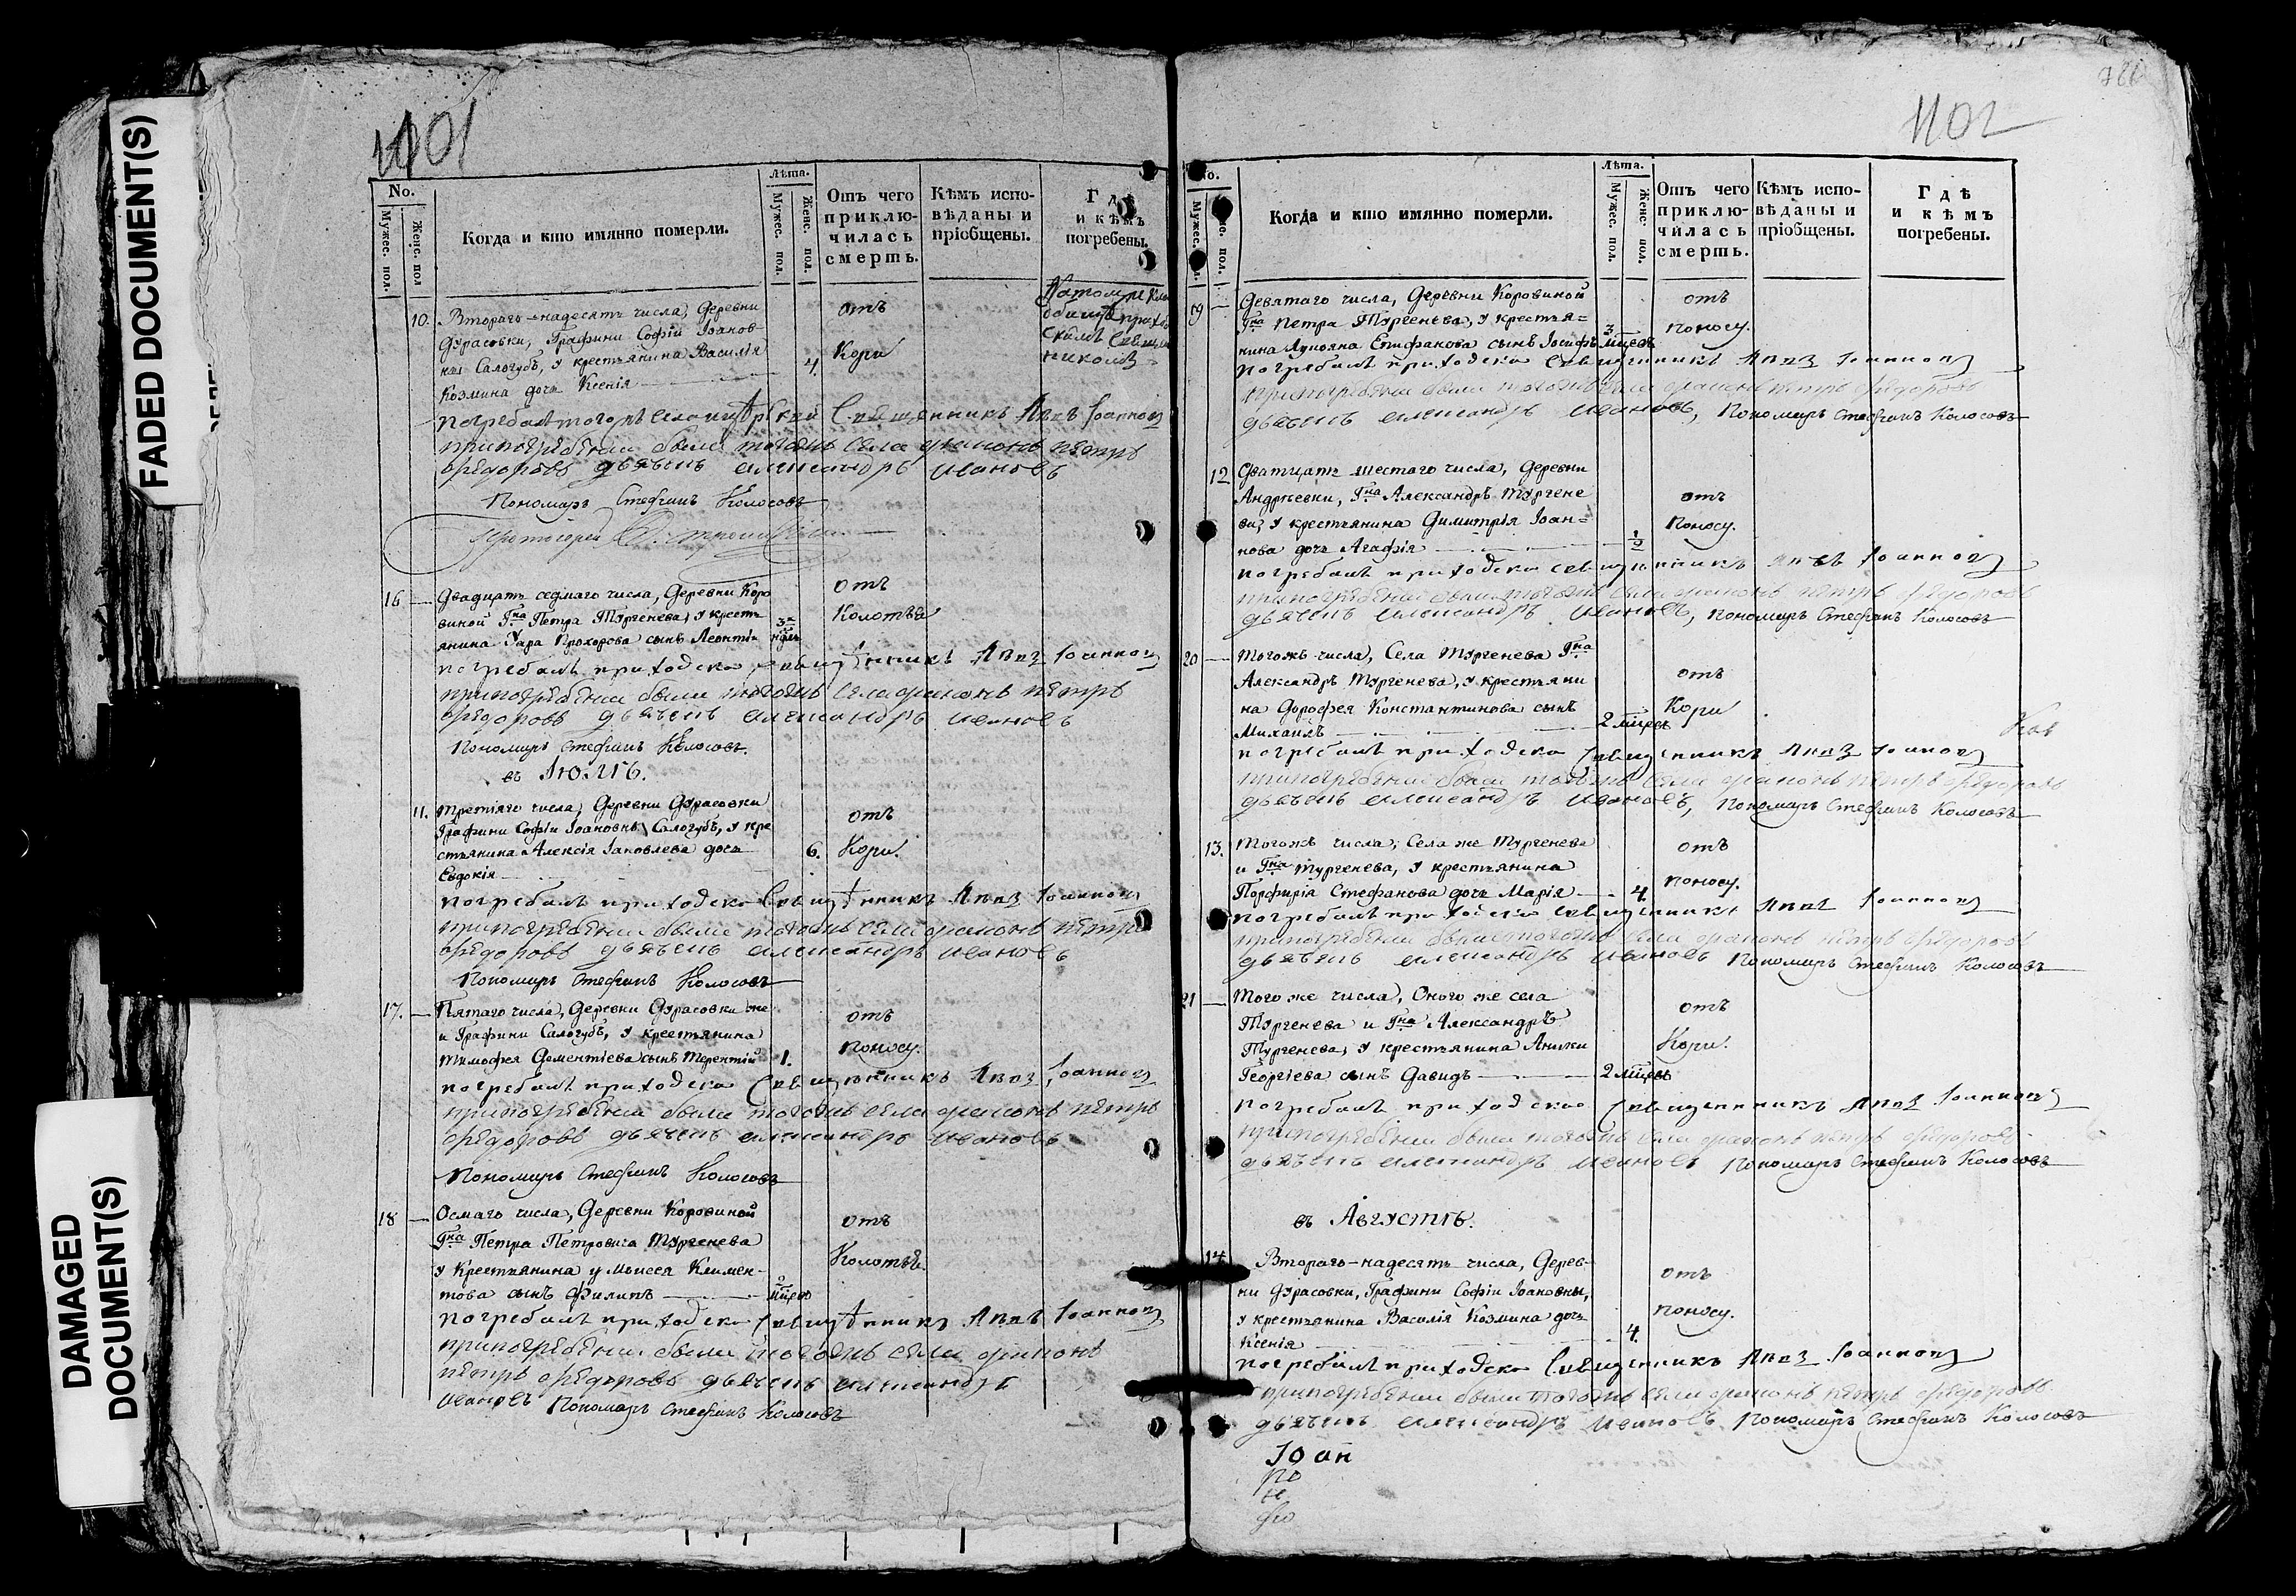 FADED DOCUMENT(S)
DAMAGED
DOCUMENT(S)
1101
No.
Мужес. пол.
Женс. пол
Когда и кто имянно померли.
Лѣта.
Мужес. пол.
Женс. пол.
Отъ чего
приклю-
чилась
смерть.
Кѣмъ испо-
вѣданы и
пріобщены.
Гдѣ
и кѣмъ
погребены.
10. Втораго-надесять числа, Деревни
Дурасовки, Графини Софіи Іоанов-
ны Салогубъ, у крестьянина Василія
Козмина дочь Ксенія
4.
отъ
Кори
погребалъ Священникъ
при погребеніи были тогожъ села діаконъ петръ
Федоровъ дьячекъ александръ ивановъ
Пономарь Стефанъ Колосовъ
16 — Двадцать седмаго числа, Деревни Коро
виной Гна Петра Тургенева, у кресть
янина Уара Прохорова сынъ Леонті
3
отъ
Колотья
погребалъ приходско Священникъ
при погребеніи были тогожъ села діаконъ петръ
Федоровъ дьячекъ александръ ивановъ
Пономарь Стефанъ Колосовъ.
въ Іюлѣ.
11. Третіяго числа, Деревни Дурасовки
Графини Софіи Іоановны Салогубъ, у кре
стьянина Алексія Іаковлева дочь
Евдокія
6.
отъ
Кори.
погребалъ приходско Священникъ
при погребеніи были тогожъ села діаконъ петръ
Федоровъ дьячекъ александръ ивановъ
Пономарь Стефанъ Колосовъ
17. — Пятаго числа, Деревни Дурасовки же
и Графини Салогубъ, у крестьянина
Тимофея Дементіева сынъ Терентій
1.
отъ
Поносу.
погребалъ приходско Священникъ
при погребеніи были тогожъ села діаконъ петръ
Федоровъ дьячекъ александръ ивановъ
Пономарь Стефанъ Колосовъ
18 — Осмаго числа, Деревни Коровиной
Гна Петра Петровича Тургенева
у Крестьянина у Моисея Климен-
това сынъ Филипъ
отъ
Колотья.
погребалъ приходско Священникъ
при погребеніи были тогожъ села діаконъ
петръ Федоровъ дьячекъ александръ
ивановъ Пономарь Стефанъ Колосовъ
1102
No.
Мужес.
пол.
Когда и кто имянно померли.
Лѣта.
Мужес. пол.
Женс. пол.
Отъ чего
приклю-
чилась
смерть.
Кѣмъ испо-
вѣданы и
пріобщены.
Гдѣ
и кѣмъ
погребены.
19 — Девятаго числа, Деревни Коровиной
Гна Петра Тургенева, у крестья=
нина Лукояна Епифанова сынъ Іосифъ
3 мцевъ
отъ
Поносу.
погребалъ приходско Священникъ
при погребеніи были тогожъ села діаконъ петръ Федоровъ
дьячекъ александръ ивановъ, Пономарь Стефанъ Колосовъ
12 Дватцать шестаго числа, Деревни
Андреевки, Гна Александръ Тургене
ва, у крестьянина Димитрія Іоан=
нова дочь Агафія
1/2
отъ
Поносу.
погребалъ приходско священникъ
при погребеніи были тогожъ села діаконъ петръ Федоровъ
дьячекъ александръ ивановъ, Пономарь Стефанъ Колосовъ
20 — Тогожъ числа, Села Тургенева Гна
Александръ Тургенева, у крестьяни
на Дорофея Константинова сынъ
Михаилъ
2 мцевъ
отъ
Кори
погребалъ приходско Священникъ
при погребеніи были тогожъ села діаконъ петръ Федоровъ
дьячекъ александръ ивановъ, Пономарь Стефанъ Колосовъ
13. Тогожъ числа, Села же Тургенева
и Гна Тургенева, у крестьянина
Порфирія Стефанова дочь Марія
4.
отъ
поносу.
погребалъ приходско священникъ
при погребеніи были тогожъ села діаконъ петръ Федоровъ
дьячекъ александръ ивановъ Пономарь Стефанъ Колосовъ
21 — Того же числа, Оного же села
Тургенева и Гна Александръ
Тургенева, у крестьянина Аники
Георгіева сынъ Давидъ
2 мцевъ
отъ
Кори.
погребалъ приходско Священникъ
при погребеніи были тогожъ села діаконъ петръ Федоровъ
дьячекъ александръ ивановъ Пономарь Стефанъ Колосовъ
въ Августѣ.
14 Втораго-надесять числа, Дерев-
ни Дурасовки, Графини Софіи Іоановны,
у крестьянина Василія Козмина дочь
Ксенія
4.
отъ
Поносу.
погребалъ приходско Священникъ
при погребеніи были тогожъ села діаконъ петръ Федоровъ
дьячекъ александръ ивановъ Пономарь Стефанъ Колосовъ